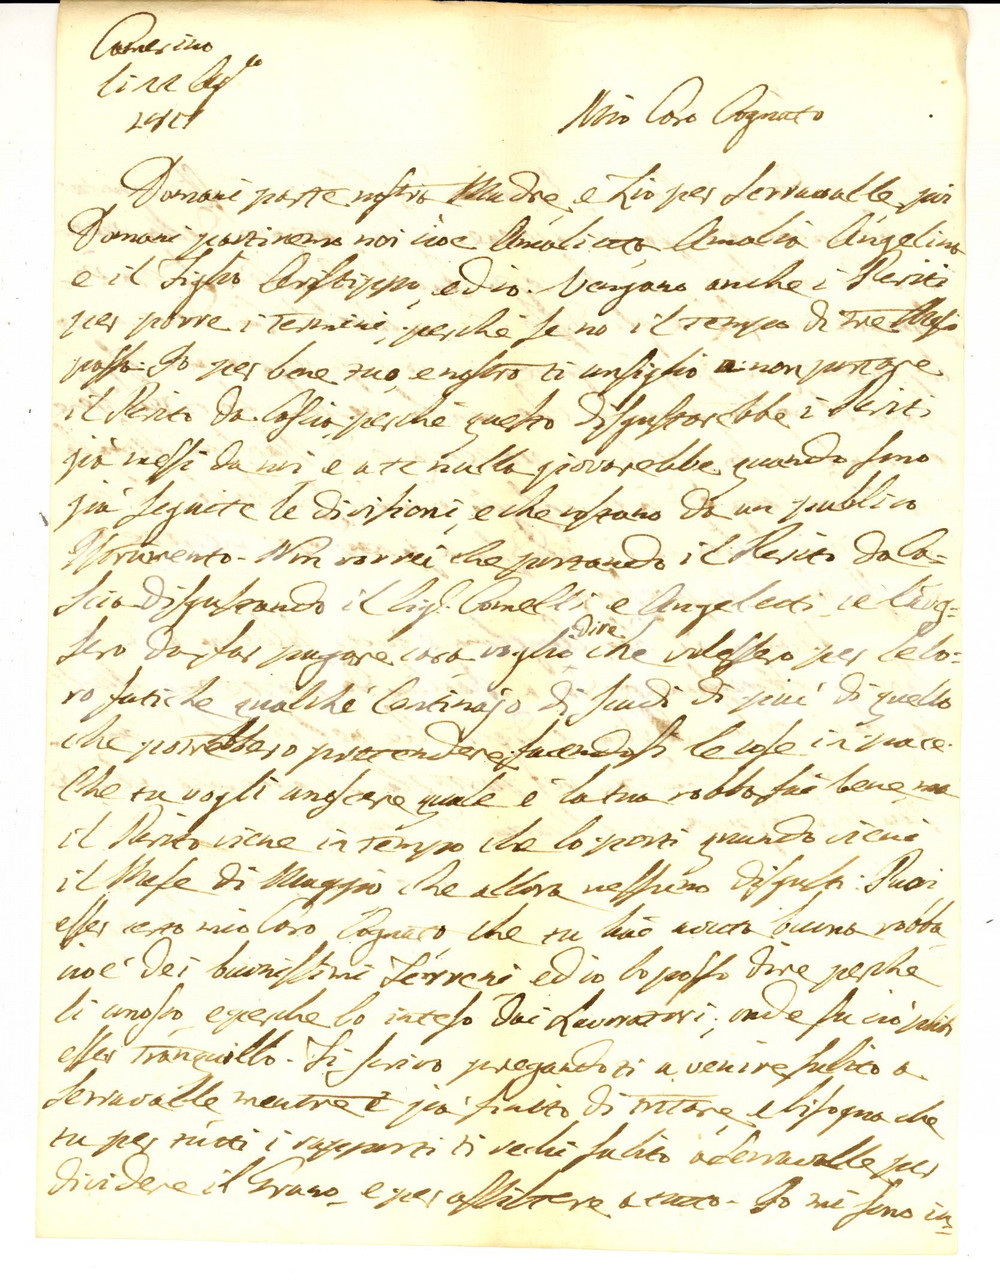 Camerino
li 22 Ag.to
Mio Caro Cognato
Domani parte nostra Madre, e Zio per Serravalle, poi
Domani partiremo noi cioè Amalietta, Amalia Angelina
e il Figlio Aristippo, ed io. Vengano anche i Periti
per porre i Termini, perché se no il tempo di tre Mesi
passa. Io per bene tuo, e nostro ti consiglio a non portare
il Perito da Cascia, perché questo disgustarebbe i Periti
già messi da noi, e a te nulla giovarebbe quando sono
già seguite le divisioni, e che costano da un publico
Istrumento. Non vorrei che portando il Perito da Ca=
scia disgustando il Sig.r Comelli e Angeletti, ce l'aves=
sero da far pagare cara voglio dire che volessero per le lo=
ro fatiche qualche Centinajo di scudi di più di quello
che potrebbero pretendere facendosi le cose in pace.
Che tu vogli conoscere quale è la tua robba fai bene, ma
il Perito viene in tempo che lo porti quando vieni
il Mese di Maggio che allora nessuno disgusti. Puoi
esser certo mio Caro Cognato che tu hai avuta buona robba
cioè dei buonissimi Terreni, ed io lo posso dire perche
li conosco, e perche lo inteso dai Lavoratori, onde su ciò puoi
esser tranquillo. Ti scrivo pregandoti a venire subito a
Serravalle mentre è già finito di tritare, e bisogna che
tu per tutti i rapporti ti rechi subito a Serravalle per
dividere il Grano, e per assistere a tutto. Io mi sono in=